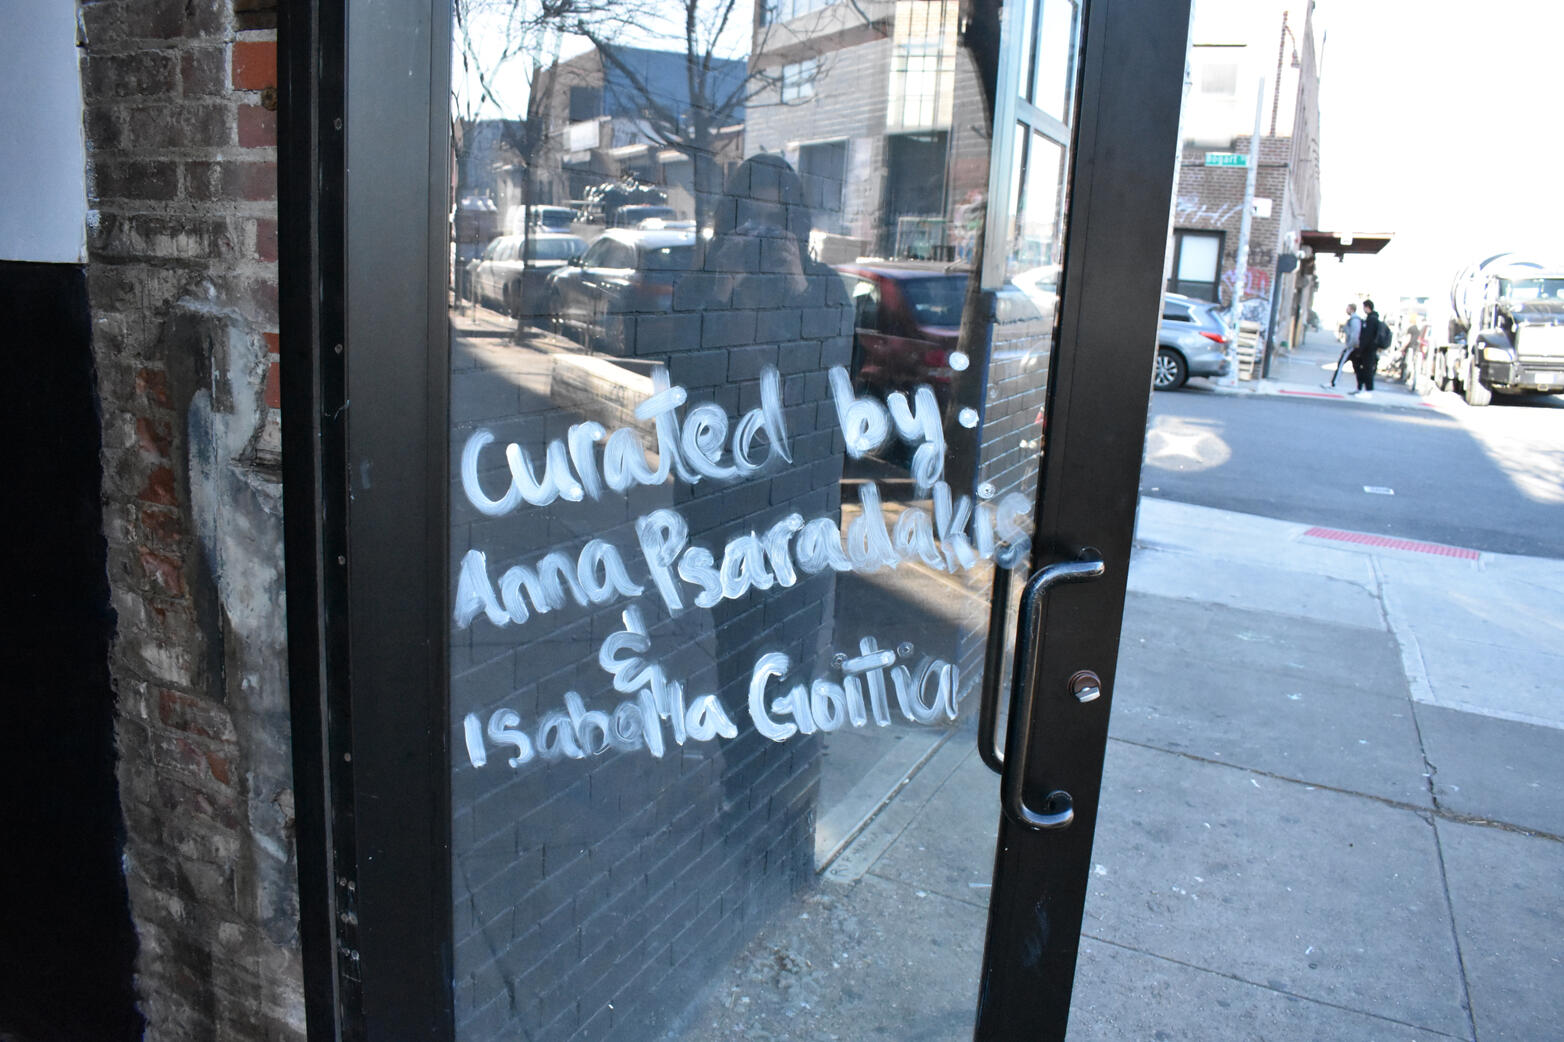 Curated by:
Anna Psaradakis
&
Isabella Goitia
Bogart